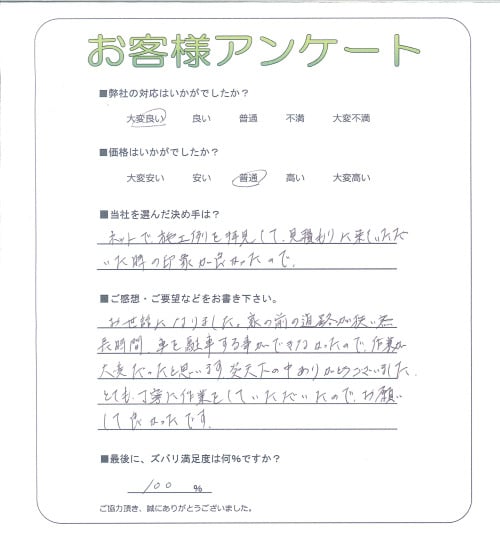 お客様アンケート
■弊社の対応はいかがでしたか？
大変良い 良い 普通 不満 大変不満
■価格はいかがでしたか？
大変安い 安い 普通 高い 大変高い
■当社を選んだ決め手は？
ネットで施工例を拝見して、見積もりに来ていただ
いた時の印象が良かったので、
■ご感想・ご要望などをお書き下さい。
お世話になりました。家の前の道路が狭い為
長時間、車を駐車する事ができなかったので、作業が
大変だったと思います。炎天下の中ありがとうございました。
とても、丁寧に作業をしていただいたので、お願い
して良かったです。
■最後に、ズバリ満足度は何%ですか？
100 %
ご協力頂き、誠にありがとうございました。